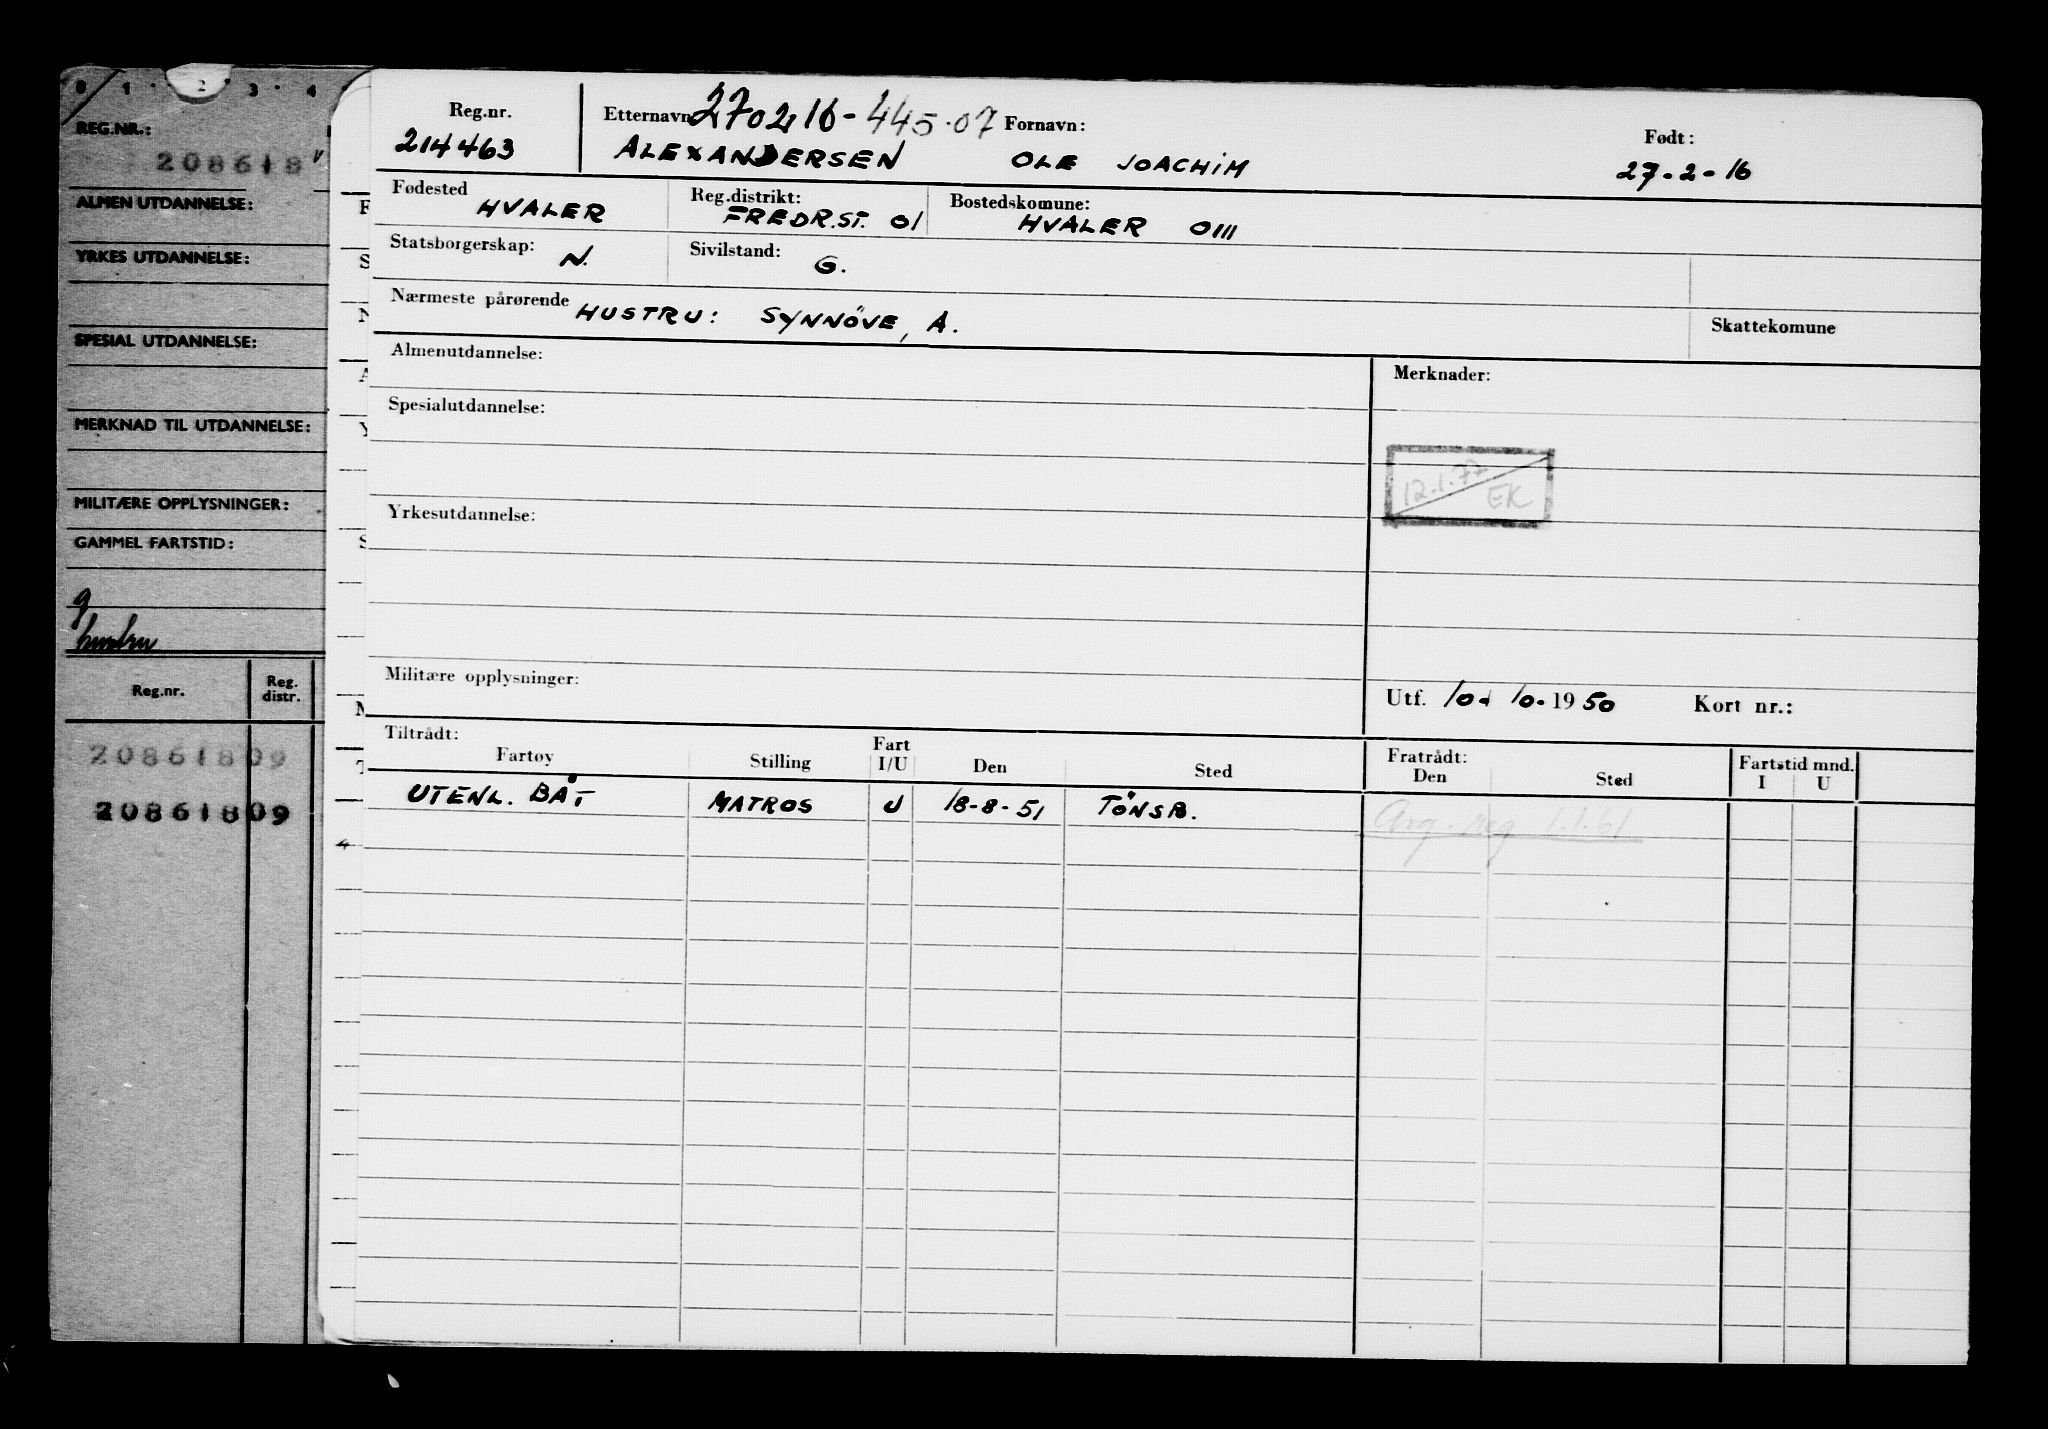 0 1 2 3 4
REG.NR.:
208618
ALMEN UTDANNELSE:
YRKES UTDANNELSE:
SPESIAL UTDANNELSE:
MERKNAD TIL UTDANNELSE:
MILITÆRE OPPLYSNINGER:
GAMMEL FARTSTID:
g
hustru
Reg.nr. Reg. distr.
20861809
20861809
Reg.nr. Etternavn 270216-445.07 Fornavn: Født:
214463 ALEXANDERSEN OLE JOACHIM 27-2-16
Fødested HVALER Reg.distrikt: FREDR.ST. 01 Bostedskomune: HVALER 0111
Statsborgerskap: N. Sivilstand: G.
Nærmeste pårørende HUSTRU: SYNNÖVE, A. Skattekomune
Almenutdannelse: Merknader:
Spesialutdannelse:
12.1.77 EK
Yrkesutdannelse:
Militære opplysninger: Utf. 10. 10. 1950 Kort nr.:
Tiltrådt: Fratrådt:
Fartøy Stilling Fart I/U Den Sted Den Sted Fartstid mnd. I U
UTENL. BÅT MATROS U 18-8-51 TÖNSB.
Avg. reg 1.1.61